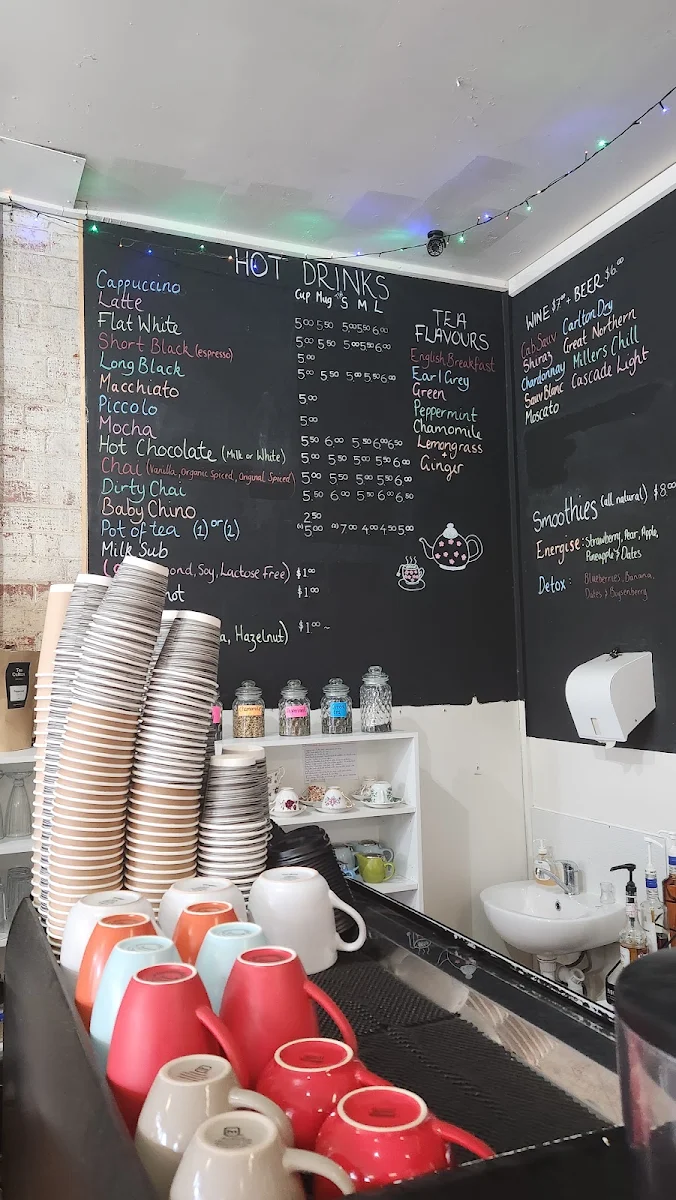 HOT DRINKS
Cup Mug S M L
Cappuccino 5⁰⁰ 5⁵⁰ 5⁰⁰ 5⁵⁰ 6⁰⁰
Latte
Flat White 5⁰⁰ 5⁵⁰ 5⁰⁰ 5⁵⁰ 6⁰⁰
Short Black (espresso) 5⁰⁰
Long Black 5⁰⁰ 5⁵⁰ 5⁰⁰ 5⁵⁰ 6⁰⁰
Macchiato 5⁰⁰
Piccolo 5⁰⁰
Mocha 5⁵⁰ 6⁰⁰ 5⁵⁰ 6⁰⁰ 6⁵⁰
Hot Chocolate (Milk or White) 5⁰⁰ 5⁵⁰ 5⁰⁰ 5⁵⁰ 6⁰⁰
Chai (Vanilla, Organic Spiced, Original Spiced) 5⁰⁰ 5⁵⁰ 5⁰⁰ 5⁵⁰ 6⁰⁰
Dirty Chai 5⁵⁰ 6⁰⁰ 5⁵⁰ 6⁰⁰ 6⁵⁰
Baby Chino 2⁵⁰
Pot of tea (1) or (2) (1) 5⁰⁰ (2) 7⁰⁰ 4⁰⁰ 4⁵⁰ 5⁰⁰
Milk Sub
ond, Soy, Lactose Free) $1⁰⁰
ot $1⁰⁰
a, Hazelnut) $1⁰⁰ ~
TEA
FLAVOURS
English Breakfast
Earl Grey
Green
Peppermint
Chamomile
Lemongrass
+
Ginger
WINE $7⁰⁰ + BEER $6⁰⁰
Cab Sauv Carlton Dry
Shiraz Great Northern
Chardonnay Millers Chill
Sauv Blanc Cascade Light
Moscato
Smoothies (all natural) $8⁰⁰
Energise: Strawberry, Pear, Apple,
Pineapple & Dates
Detox: Blueberries, Banana,
Dates & Boysenberry